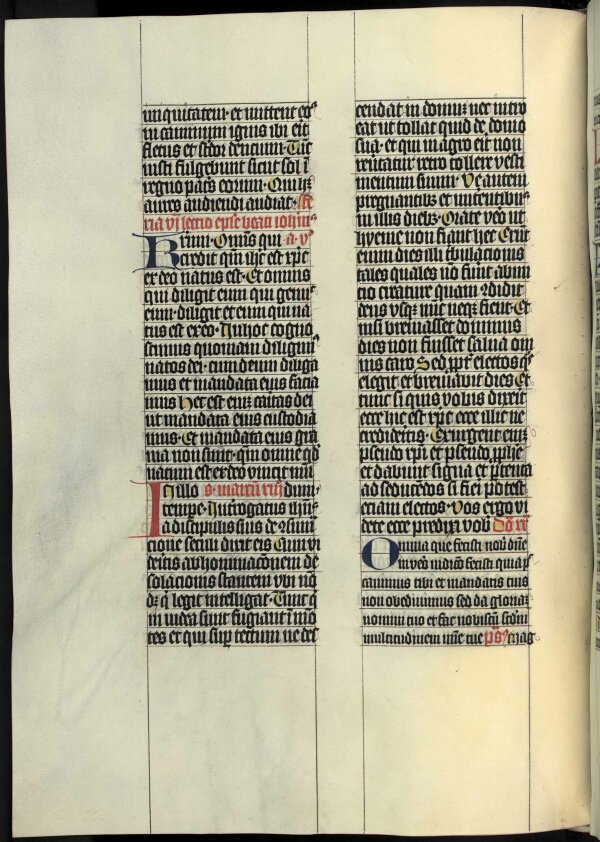 iniquitatem · et mittent eoˢ
in caminum ignis ibi erit
fletus et stridor dencium · Tūc
iusti fulgebunt sicut sol ī
regno patris eorum · Qui hʒ
aures audiendi audiat · fe
ria vj lectio epłe beati iohīs
Krimi · Omīs qui a · v
credit qm̄ ihc̄ est xp̄c
ex deo natus est · Et omnis
qui diligit eum qui genuit
eum · diligit et eum qui na
tus est ex eo · In hoc cogno
scimus quoniam diligim⁹
natos dei · cum deum diliga
mus et mandata eius facia
mus Hec est enī caritas dei
ut mandata eius custodia
mus · Et mandata eius gra
uia non sunt · qm̄ omne qd
natum est ex deo vincit mūd
In illo s · marcū xiij dum ·
tempe · Interrogatus ihūs
a discipulis suis de ɔsum
cione seculi dixit eis Cum vi
deritis abhominacōnem de
solacionis stantem vbi nō
dʒ q̄ legit intelligat · Tunc q̄
in iudea sunt fugiant ī mō
tes et qui sup tectum ne des
cendat in domuʒ nec intro
eat ut tollat quid de domo
sua · et qui in agro erit non
reūtatur retro tollere vesti
mentum suum · Ve autem
pregnantibʒ et nutrientibʒ
in illis diebʒ · Orate v̄o ut
hyeme non fiant hec Erūt
enim dies illi tribulacionis
tales quales nō fuerūt ab ini
cio creature quam ɔdidit
deus vsqʒ nūc neqʒ fient · Et
nisi breuiasset dominus
dies non fuisset salua om
nis caro Sed ppt̄ electos q̄s
elegit et breuiauit dies Et
tunc si quis vobis dixerit
ecce hic est xp̄c ecce illic ne
credideritis · Exurgent enī
pseudo xp̄i et pseudo pphē
et dabunt signa et p̄tenta
ad seducēdos si fieri pōtest
eciam electos · Vos ergo vi
dete ecce predixi vob
Omnia que fecisti nob dn̄e
in v̄o iudicō fecisti quia p̄c
cauimus tibi et mandatis tuis
non obediuimus sed da gloriaʒ
nomini tuo et fac nobiscū scdm
multitudinem mīe tue ps̄ Mag